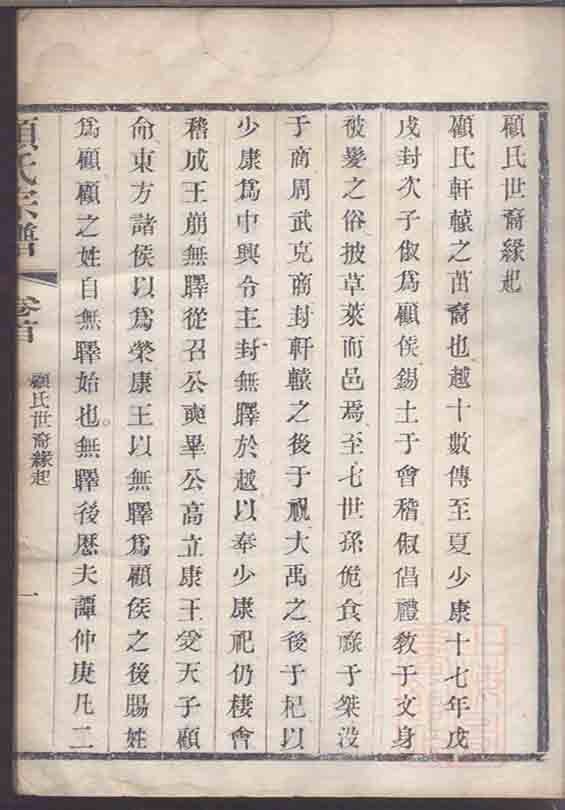 顧氏世裔緣起
顧氏軒轅之苗裔也越十數傳至夏少康十七年戊
戌封次子俶爲顧侯錫土于會稽俶倡禮敎于文身
被髮之俗披草萊而邑焉至七世孫佹食祿于桀没
于商周武克商封軒轅之後于祝大禹之後于杞以
少康爲中興令主封無驛於越以奉少康祀仍棲會
稽成王崩無驛從召公奭畢公高立康王受天子顧
命東方諸侯以爲榮康王以無驛爲顧侯之後賜姓
爲顧顧之姓自無驛始也無驛後歷夫譚仲庚凡二
顧氏宗譜
卷首
顧氏世裔緣起
一